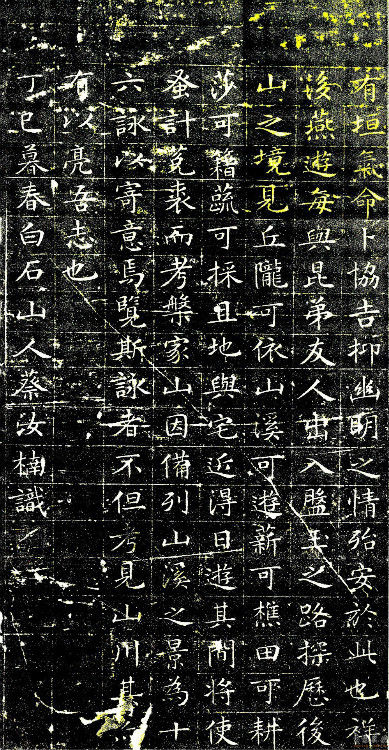 有垣氣命卜協吉抑幽明之情殆安於此也祥
後燕遊每與昆弟友人出入盤玉之路探歷後
山之境見丘隴可依山溪可遊薪可樵田可耕
莎可藉蔬可採且地與宅近得日遊其間將使
蚤計菟裘而考槃家山因備列山溪之景為十
六詠以寄意焉覽斯詠者不但考見山川其
有以亮吾志也
丁巳暮春白石山人蔡汝楠識